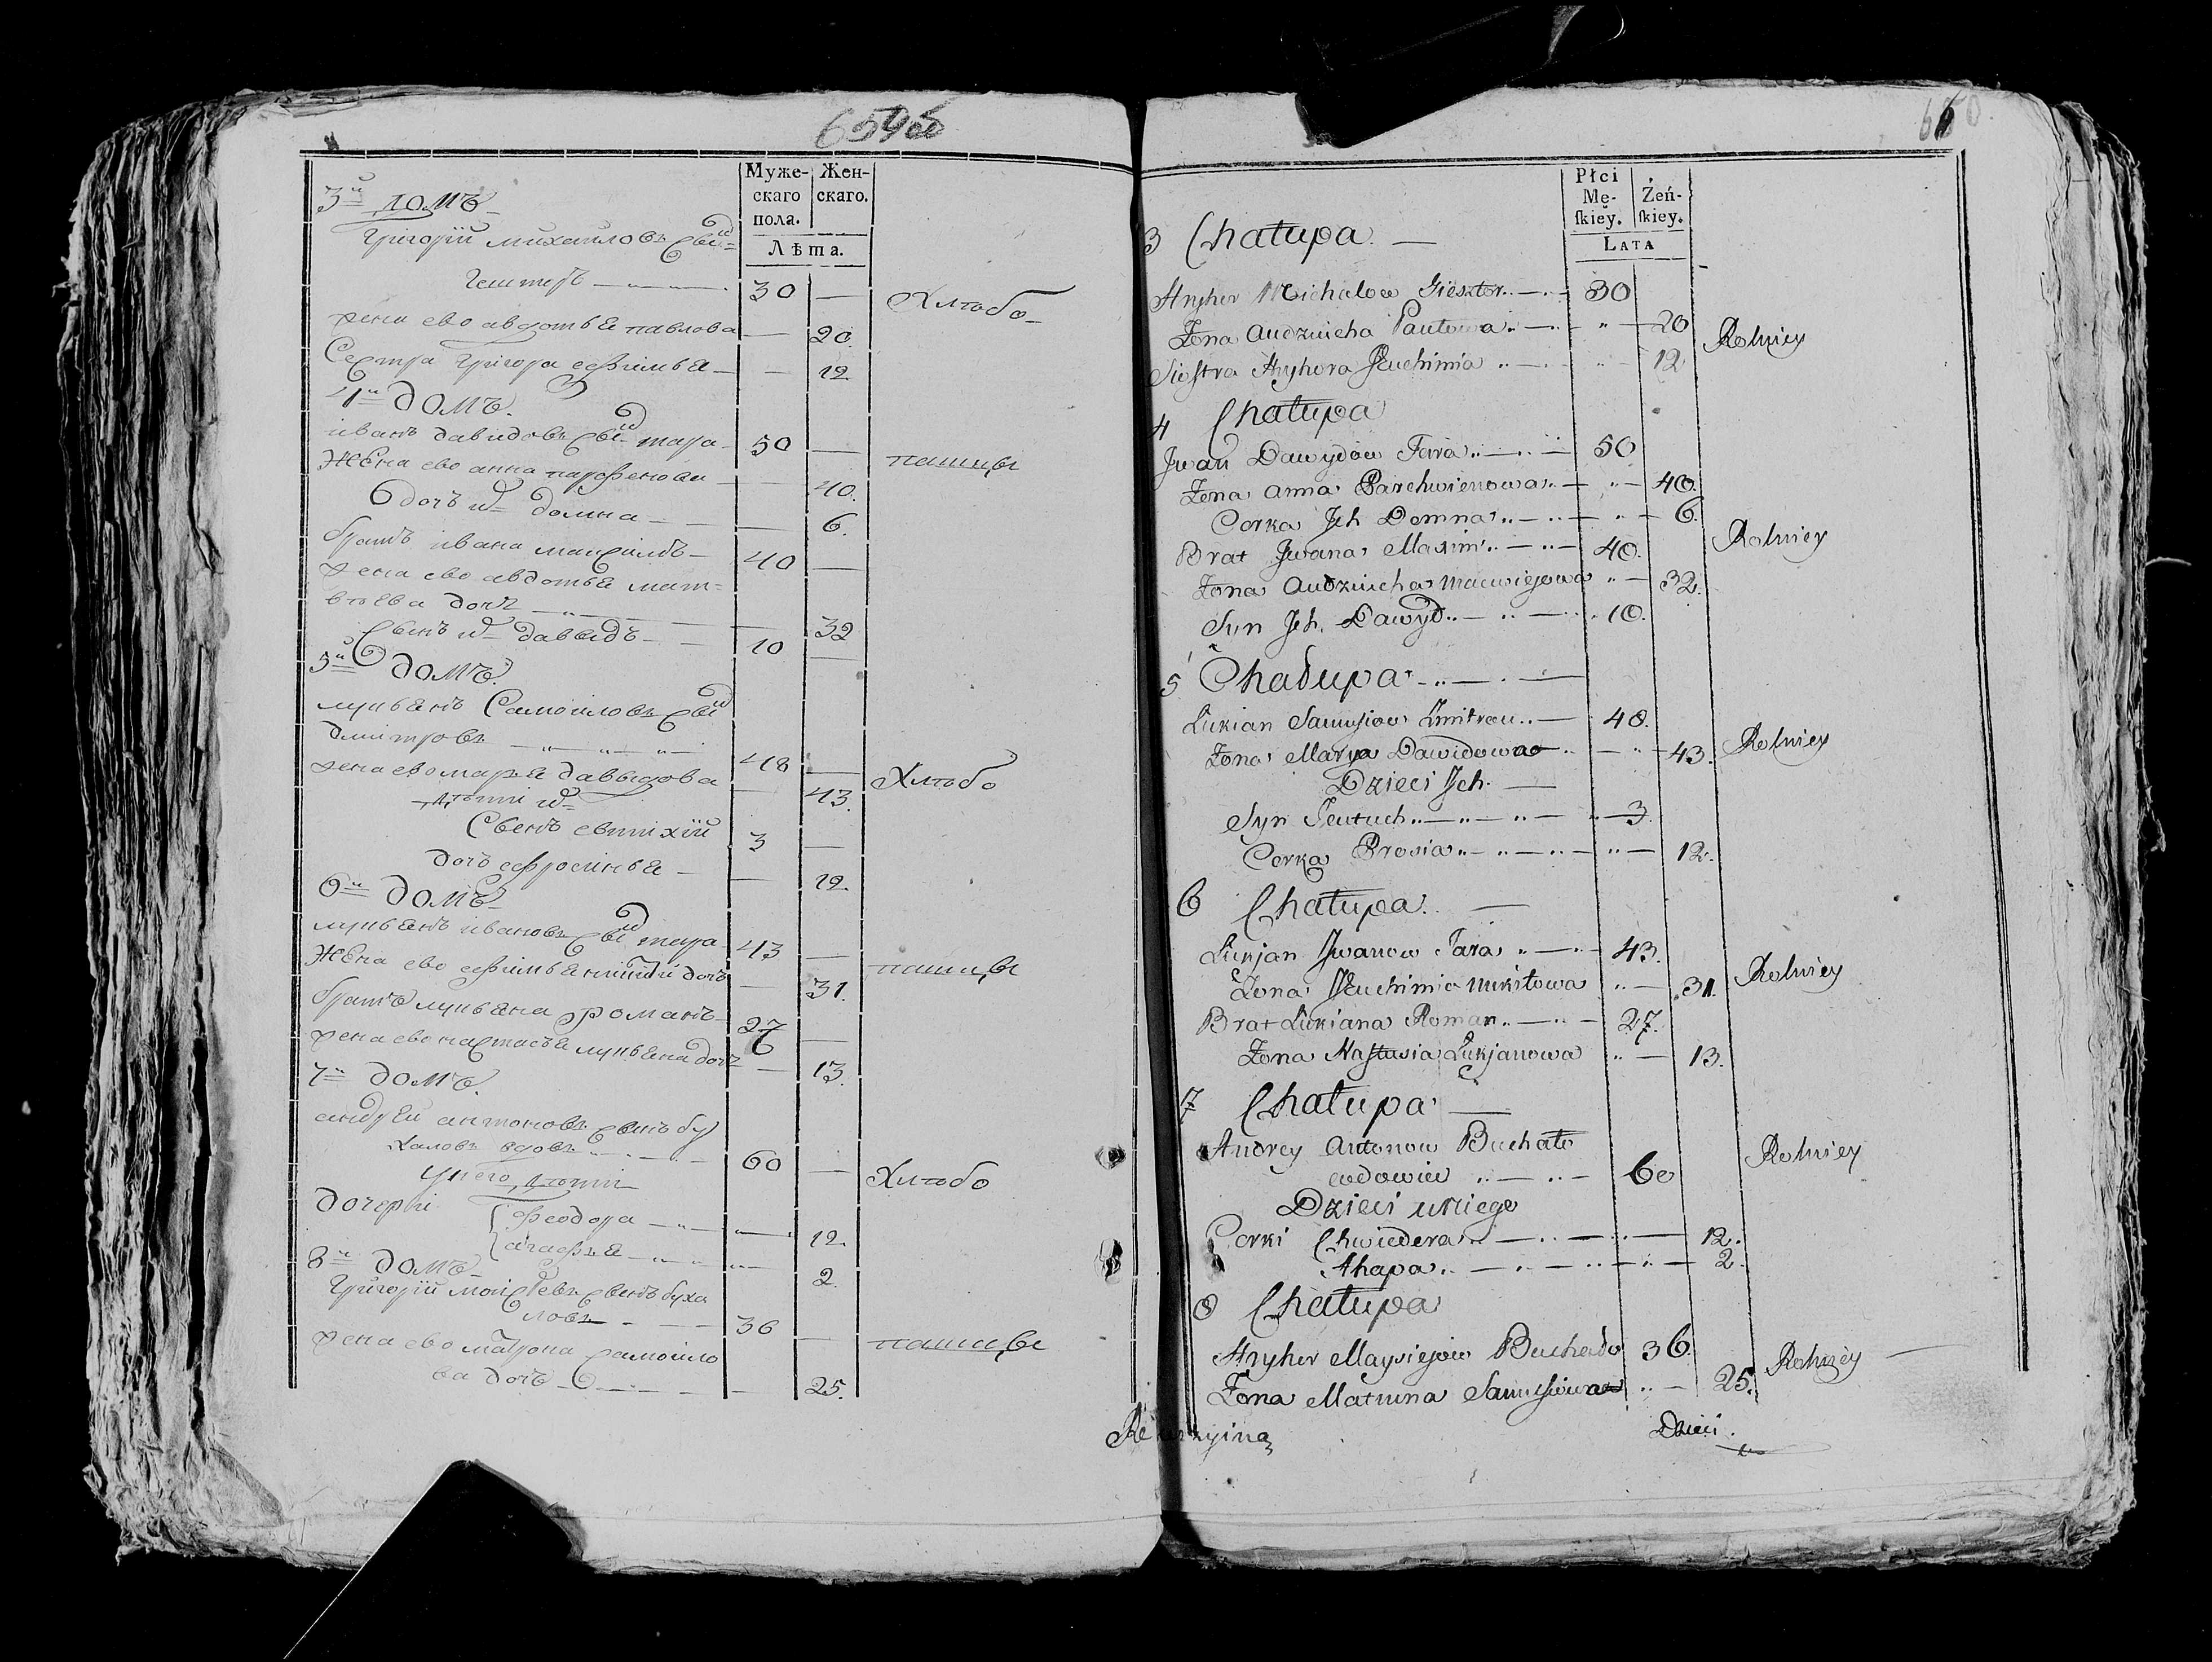 659об
Муже-
скаго
пола.
Жен-
скаго.
Лѣта.
3й домъ
Григорій михайловъ сынъ
Гештеръ 30 — Хлѣбо-
жена ево авдотья павлова — 20.
Сестра Григора ефимья — 12
4й домъ.
иванъ давидовъ сынъ тара 50 — пашцы
Жена ево анна парфенова — 40.
дочь их домна — 6.
братъ ивана максимъ 40 —
жена ево авдотья мат-
вѣева дочь — 32
сынъ их давыдъ 10 —
5й домъ.
лукьянъ Самойловъ сынъ
дмитровъ 48 — Хлѣбо
жена ево марья давыдова — 43.
дѣти их
Сынъ евтихій 3 —
дочь ефросинья — 12.
6й домъ
лукьянъ ивановъ сынъ тара 43 — пашцы
Жена ево ефимья дочь — 31.
братъ лукьяна романъ 27 —
жена ево настасья лукьяна дочь — 13.
7й домъ.
андрей антоновъ сынъ бу
халовъ вдовъ 60 — Хлѣбо
у него дѣти
дочери феодора — 12.
агафья — 2.
8й домъ
Григорій моисѣевъ сынъ буха
ловъ 36 — пашцы
жена ево матрона самойло
ва дочь — 25.
660.
Płci
Mę-
ſkiey.
Żeń-
ſkiey.
LATA
3 Chałupa
Hryhor Michałow Giesztor 30
Zona Audziucha Pautowa 20 Rolnicy
Siostra Hryhora Jeuchimia 12
4 Chałupa
Jwan Dawydow Tara 50
Zona Anna Parchwienowa 40.
Corka Jch Domna 6. Rolnicy
Brat Jwana Maxim 40.
Zona Audziucha Maćwiejowa 32.
Syn Jch Dawyd 10.
5 Chałupa
Łukian Samusiow Zmitrow 48.
Zona Marya Dawidowa 43. Rolnicy
Dzieci Jch
Syn Jeutuch 3
Corka Prosia 12.
6 Chałupa
Łukjan Jwanow Tara 43.
Zona Jeuchimia Mikitowa 31. Rolnicy
Brat Łukiana Roman 27.
Zona Nastusia Łukjanowa 13.
7 Chałupa
Andrey Antonow Buchało
wdowiec 60 Rolnicy
Dzieci u Niego
Corki Chwiedera 12.
Ahapa 2.
8 Chałupa
Hryhor Maysiejow Buchało 36. Rolnicy
Zona Matruna Samusiowa 25.
Dzieci